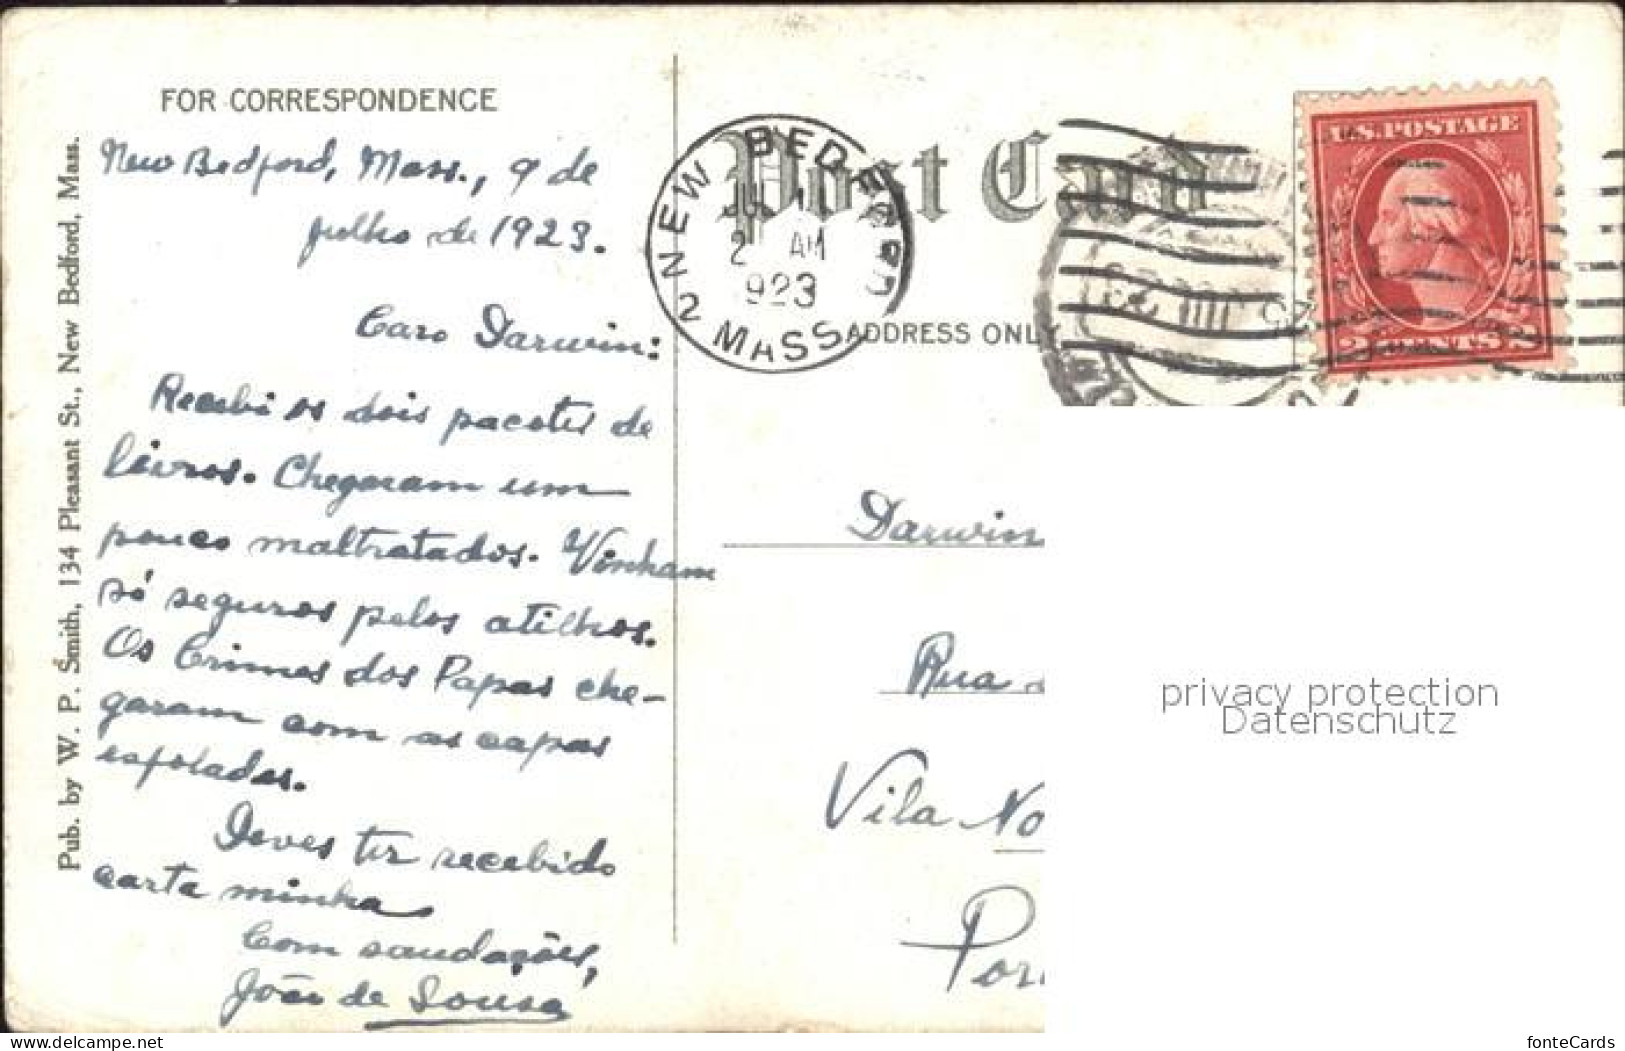 FOR CORRESPONDENCE
New Bedford, Mass., 9 de
julho de 1923.
Caro Darwin:
Recebi os dois pacotes de
livros. Chegaram um
pouco maltratados. Vinham
só seguros pelos atilhos.
Os Crimes dos Papas che-
garam com as capas
esfoladas.
Deves ter recebido
carta minha
Com saudações,
João de Sousa
Pub. by W. P. Smith, 134 Pleasant St., New Bedford, Mass.
Post Card
NEW BEDFORD
2 AM
1923
MASS
2
ADDRESS ONLY
U.S. POSTAGE
2 CENTS 2
Darwin
Rua
Vila No
Por
privacy protection
Datenschutz
www.delcampe.net
fonteCards